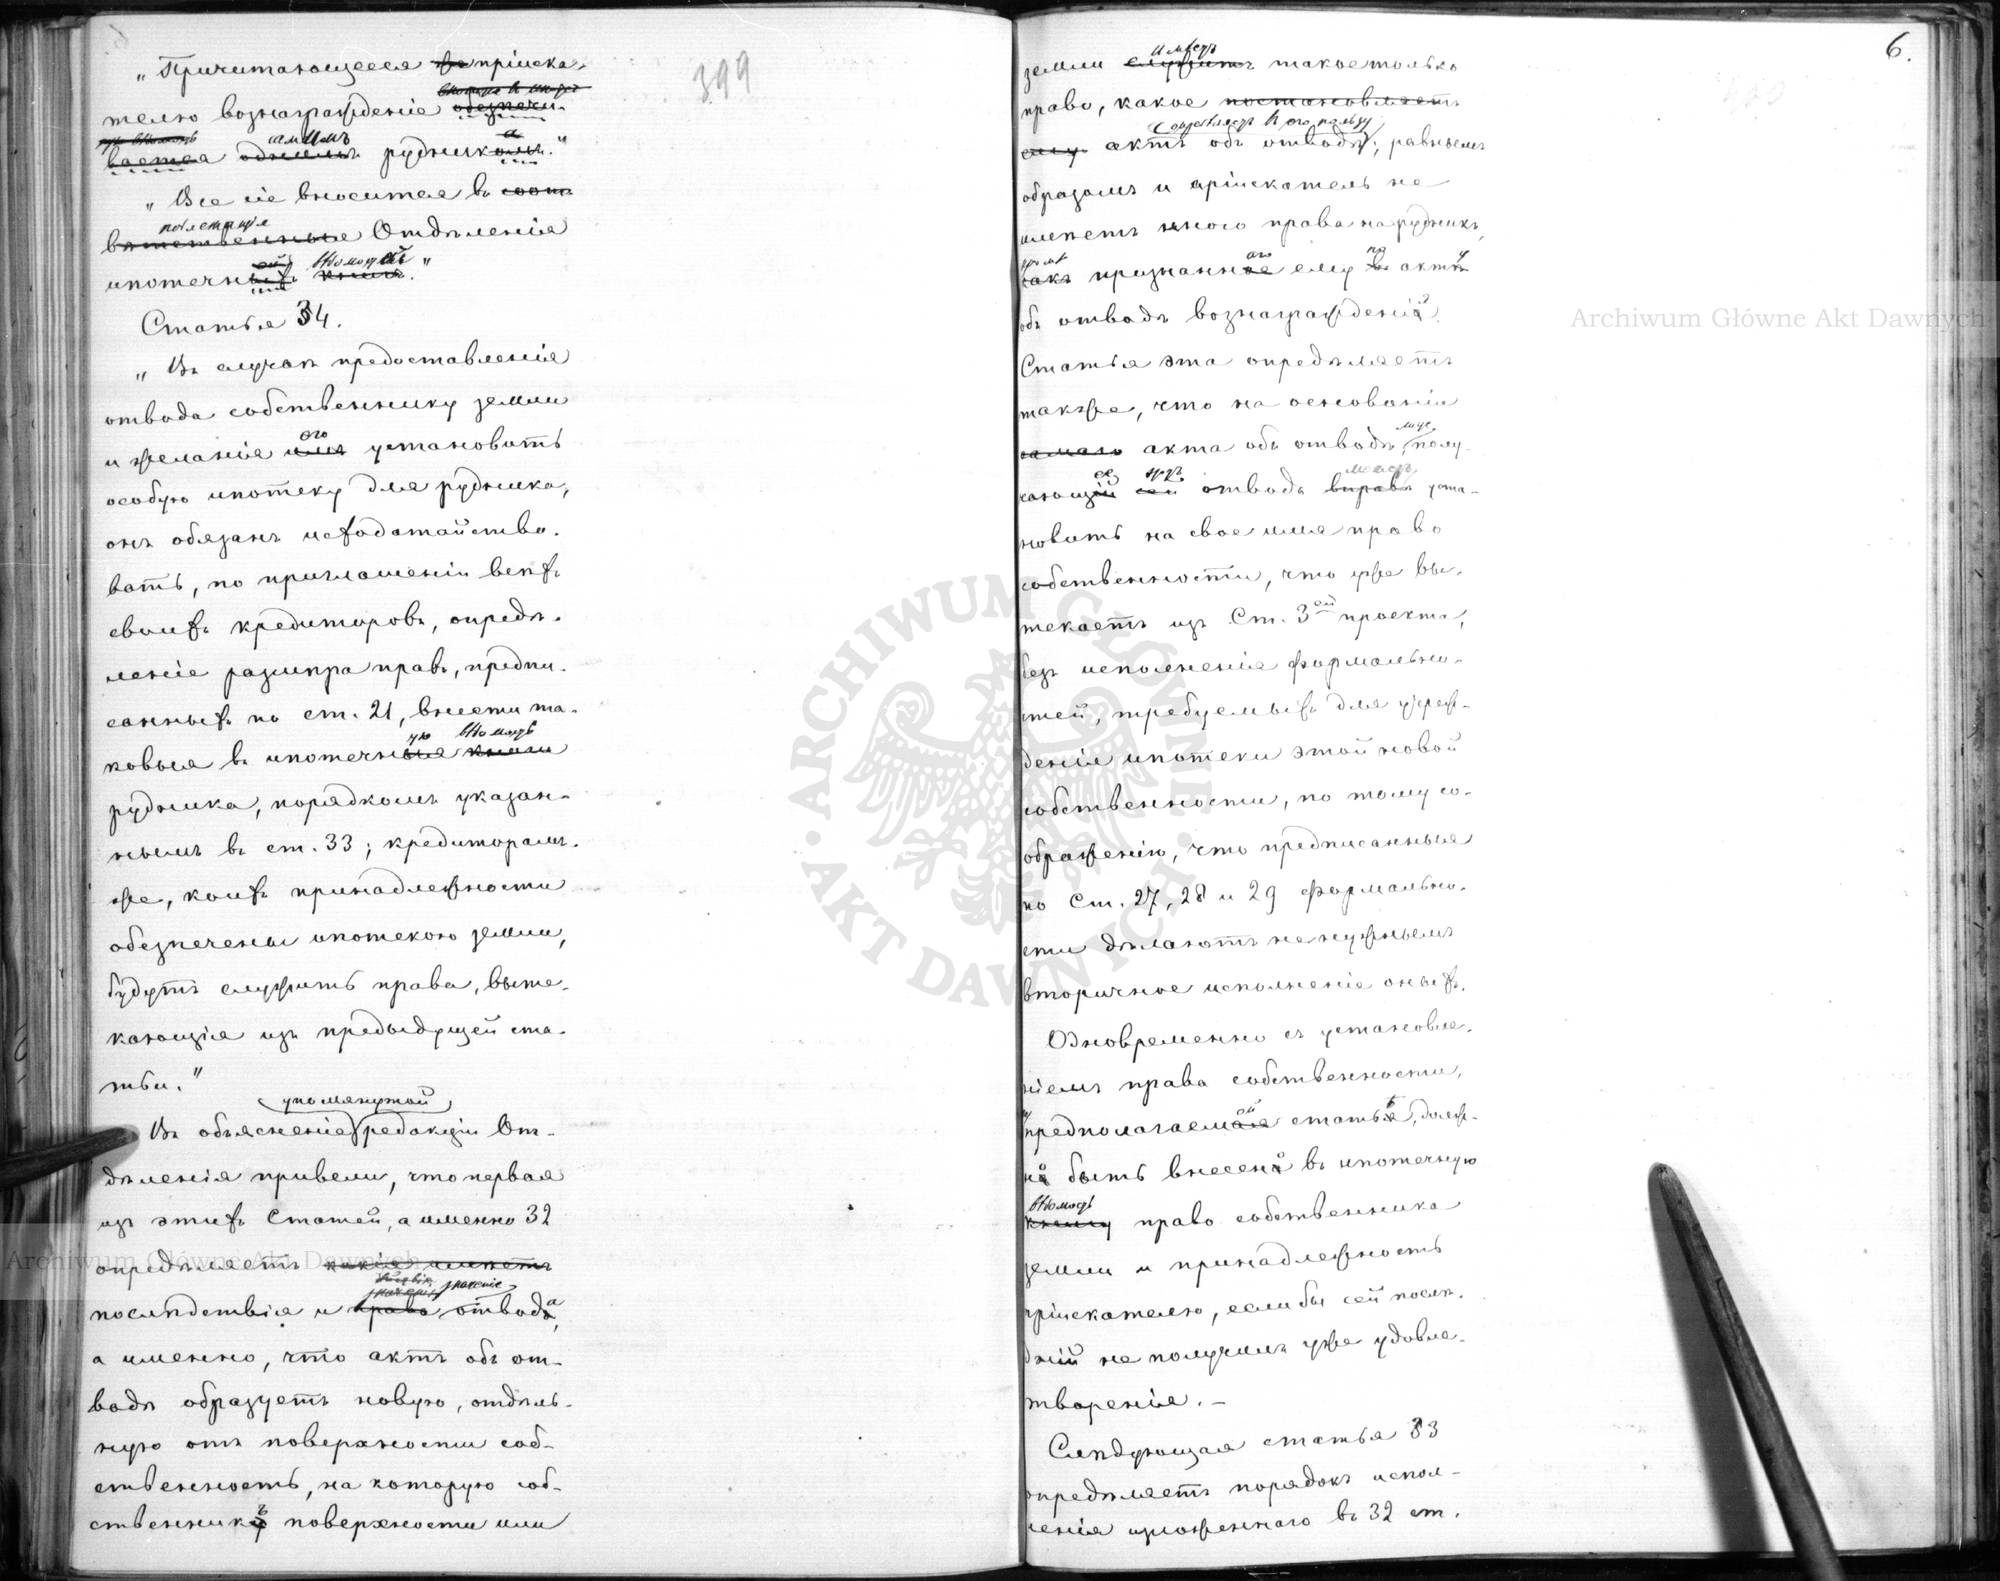 399
„Причитающееся за пріиска-
телю вознагражденіе обезпечи-
вается самимъ рудника."
„Все сіе вносится въ соот-
по лет
вѣтственныя Отдѣленія
ипотечныхъ книгъ."
Статья 34.
„Въ случаѣ предоставленія
отвода собственнику земли
его
и желанія имъ установить
особую ипотеку для рудника,
онъ обязанъ исходатайство-
вать, по приглашеніи всѣхъ
своихъ кредиторовъ, опредѣ-
леніе размѣра правъ, предпи-
санныхъ по ст. 21, внести та-
ую
ковыя въ ипотечныя книги
рудника, порядкомъ указан-
нымъ въ ст. 33; кредиторамъ-
же, коихъ принадлежности
обезпечены ипотекою земли,
будутъ служить права, выте-
кающія изъ предыдущей ста-
тьи."
упомянутой
Въ объясненіе редакціи От-
дѣленія привели, что первая
изъ этихъ Статей, а именно 32
опредѣляетъ какія имѣетъ
значеніе
послѣдствія и право отвода,
а именно, что актъ объ от-
водѣ образуетъ новую, отдѣль-
ную отъ поверхности соб-
ственность, на которую соб-
ственникъ поверхности или
6.
имѣетъ
земли служитъ такое только
право, какое постановляетъ
въ его пользу
ему актъ объ отводѣ; равнымъ
образомъ и пріискатель не
имѣетъ иного права на рудникъ,
кромѣ
какъ признаннаго ему по акту
объ отводѣ вознагражденія.
Статья эта опредѣляетъ
также, что на основаніи
лице
самаго акта объ отводѣ, полу-
можетъ
чающій сей отводъ вправѣ уста-
новить на свое имя право
собственности, что уже вы-
текаетъ изъ Ст. 3ей проекта,
безъ исполненія формально-
стей, требуемыхъ для учреж-
денія ипотеки этой новой
собственности, по тому со-
ображенію, что предписанныя
по Ст. 27, 28 и 29 формально-
сти дѣлаютъ не нужнымъ
вторичное исполненіе оныхъ.
Одновременно съ установле-
ніемъ права собственности,
предполагаемой статьѣ, долж-
но быть внесено въ ипотечную
книгу право собственника
земли и принадлежность
пріискателю, если бы сей послѣ-
дній не получилъ уже удовле-
творенія. —
Слѣдующая статья 33
опредѣляетъ порядокъ испол-
ненія изложеннаго въ 32 ст.
Archiwum Główne Akt Dawnych
Archiwum Główne Akt Dawnych
ARCHIWUM GŁÓWNE · AKT DAWNYCH ·